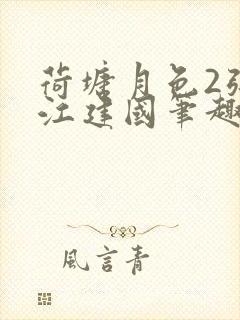 荷塘月色2张
江建国笔趣
風言青